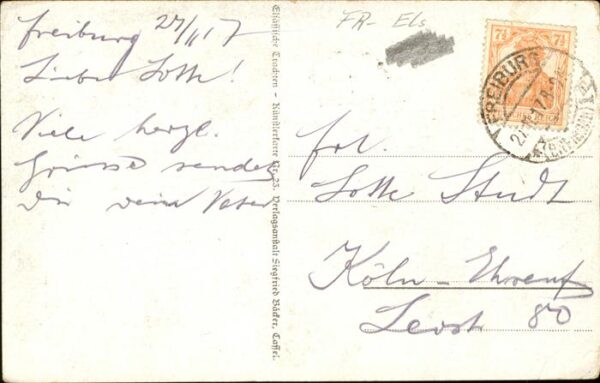 Freiburg 27/11 17
Lieber Lotte!
Viele herzl.
Grüsse sendet
Dir dein Vater
Elsässische Trachten - Künstlerkarte Nr. 23. Verlagsanstalt Siegfried Bäcker, Cassel.
FR- Els
7½ 7½
FREIBURG
Frl.
Lotte Studt
Köln-Ehrenf
80